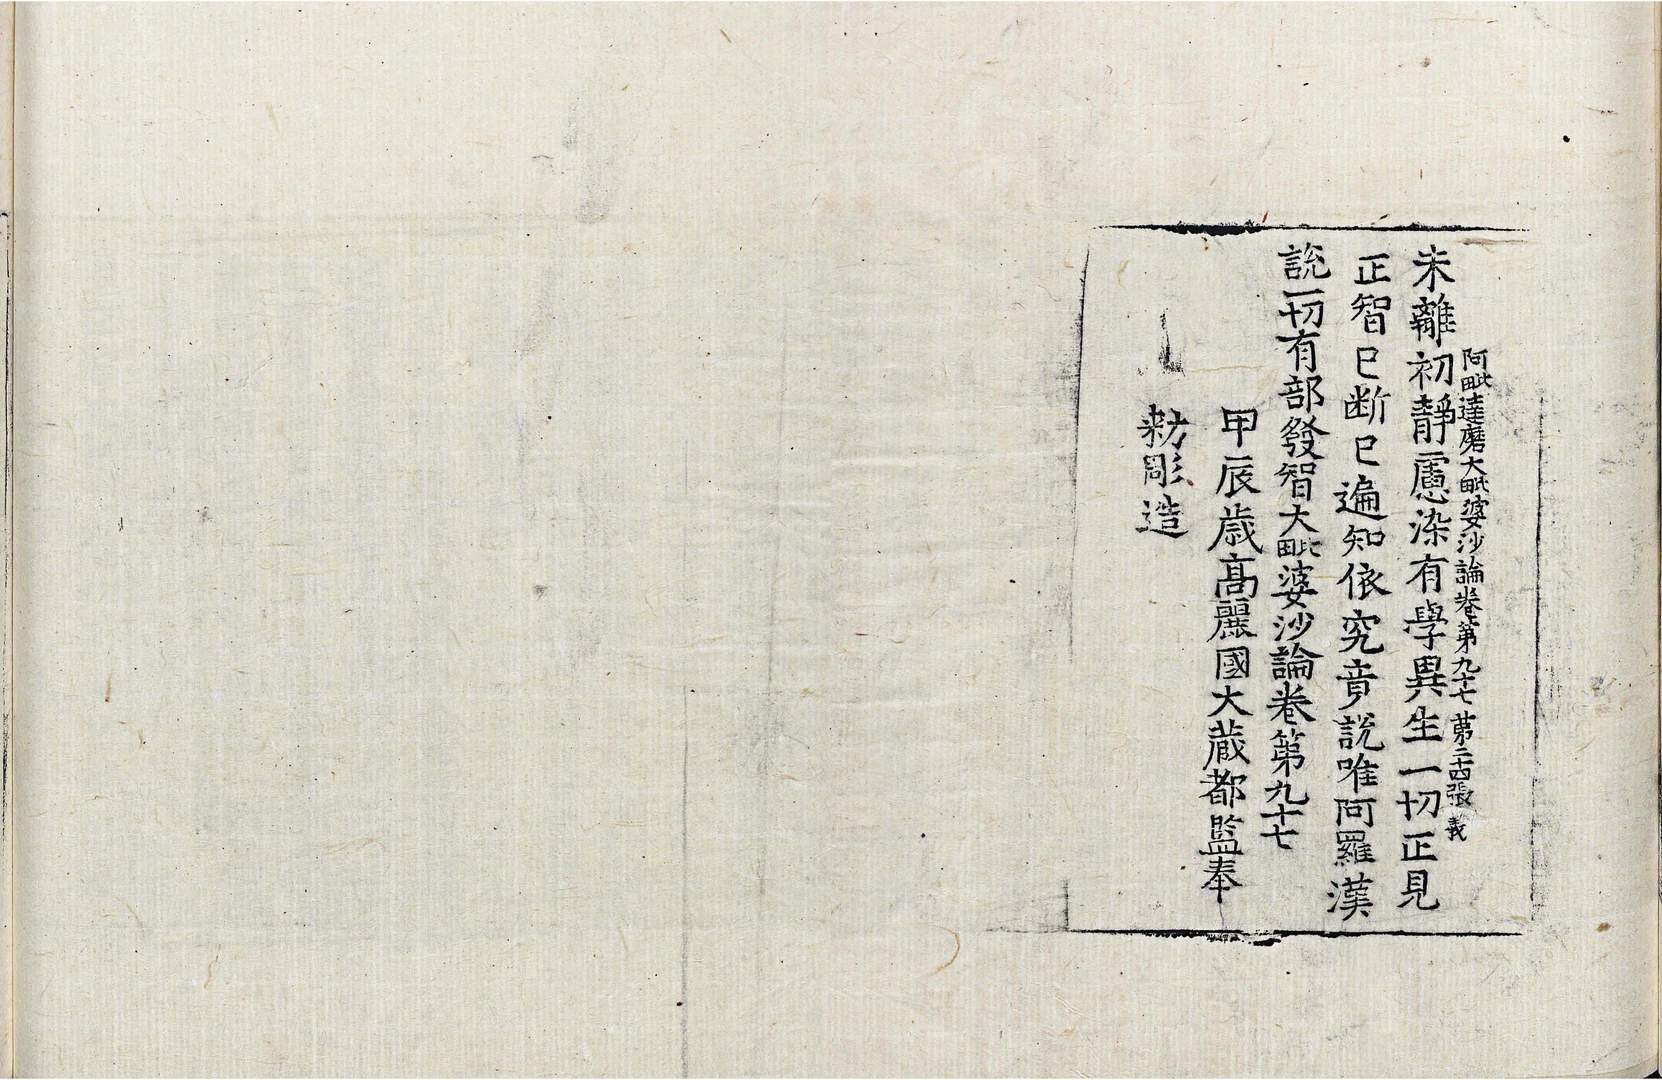 阿毗達磨大毗婆沙論卷第九十七 第二十四張 義
未離初靜慮染有學異生一切正見
正智已断已遍知依究竟說唯阿羅漢
說一切有部發智大毗婆沙論卷第九十七
甲辰歳髙麗國大蔵都監奉
勑彫造